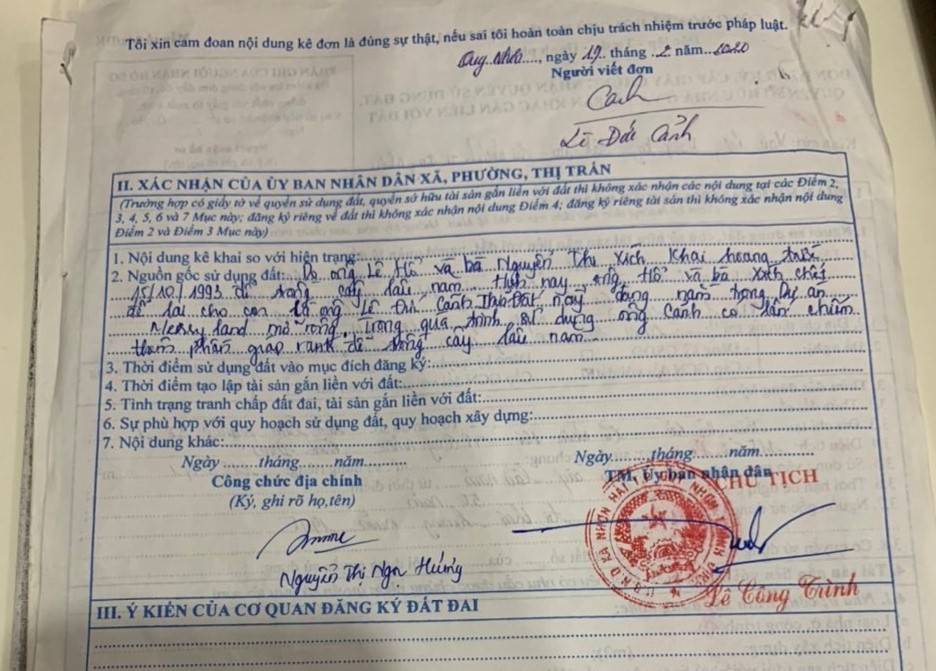 Tôi xin cam đoan nội dung kê đơn là đúng sự thật, nếu sai tôi hoàn toàn chịu trách nhiệm trước pháp luật.
Quy Nhơn, ngày 19. tháng 2 năm 2020
Người viết đơn
Cảnh
Lê Đức Cảnh
II. XÁC NHẬN CỦA ỦY BAN NHÂN DÂN XÃ, PHƯỜNG, THỊ TRẤN
(Trường hợp có giấy tờ về quyền sử dụng đất, quyền sở hữu tài sản gắn liền với đất thì không xác nhận các nội dung tại các Điểm 2,
3, 4, 5, 6 và 7 Mục này; đăng ký riêng về đất thì không xác nhận nội dung Điểm 4; đăng ký riêng tài sản thì không xác nhận nội dung
Điểm 2 và Điểm 3 Mục này)
1. Nội dung kê khai so với hiện trạng:
2. Nguồn gốc sử dụng đất: Do ông Lê Hổ và bà Nguyễn Thị Xích Khai hoang trước
15/10/1993 để trồng cây lâu năm nay ông Hổ và bà Xích chết
để lại cho con là ông Lê Đức Cảnh Thửa Đất này đang nằm trong Dự án
Merry land mở rộng. Trong quá trình sử dụng ông Cảnh có lấn chiếm
thêm phần giáp ranh để trồng cây lâu năm
3. Thời điểm sử dụng đất vào mục đích đăng ký:
4. Thời điểm tạo lập tài sản gắn liền với đất:
5. Tình trạng tranh chấp đất đai, tài sản gắn liền với đất:
6. Sự phù hợp với quy hoạch sử dụng đất, quy hoạch xây dựng:
7. Nội dung khác:
Ngày ........tháng ........năm............
Ngày........tháng ........năm............
Công chức địa chính
TM. Ủy ban nhân dân
(Ký, ghi rõ họ,tên)
CHỦ TỊCH
Nguyễn Thị Ngọc Hường
Lê Công Trình
III. Ý KIẾN CỦA CƠ QUAN ĐĂNG KÝ ĐẤT ĐAI